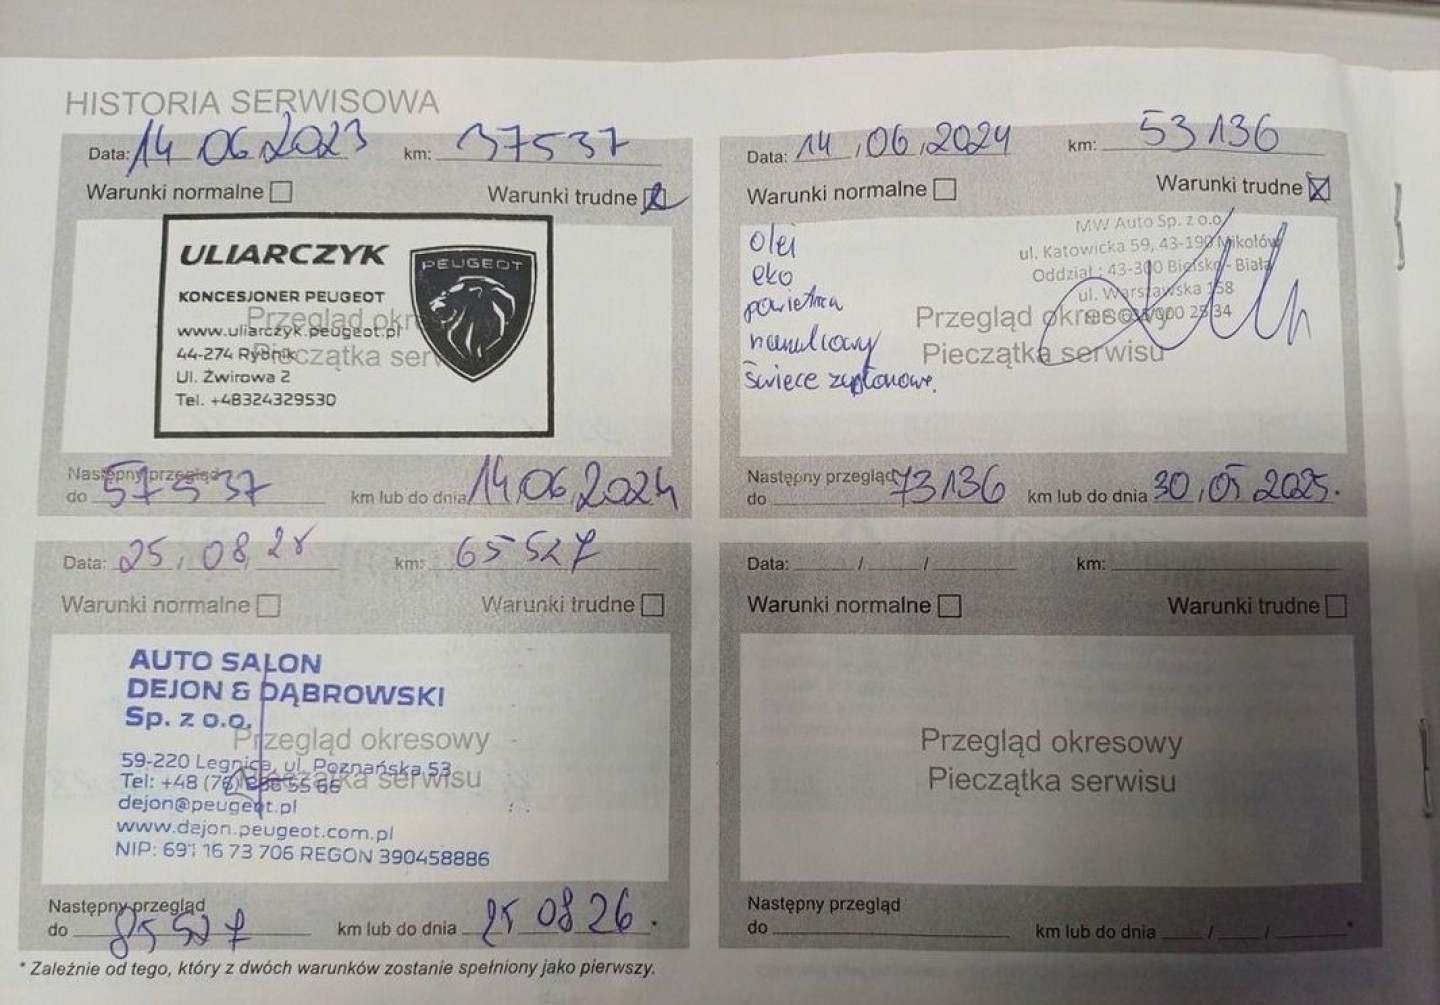 HISTORIA SERWISOWA
Data: 14 06 2023 km: 37537
Warunki normalne Warunki trudne
ULIARCZYK
PEUGEOT
KONCESJONER PEUGEOT
www.uliarczyk.peugeot.pl
44-274 Rybnik
Ul. Żwirowa 2
Tel. +48324329530
Przegląd okresowy
Pieczątka serwisu
Następny przegląd
do 57537 km lub do dnia 14,06,2024
Data: 14,06,2024 km: 53136
Warunki normalne Warunki trudne
olej
eko
powietrza
świece zapłonowe.
MW Auto Sp. z o.o.
ul. Katowicka 59, 43-190 Mikołów
Oddział: 43-300 Bielsko - Biała
ul. Warszawska 158
Przegląd okresowy
Pieczątka serwisu
Następny przegląd
do 73136 km lub do dnia 30,05 2025.
Data: 25,08,25 km: 65527
Warunki normalne Warunki trudne
AUTO SALON
DEJON & DĄBROWSKI
Sp. z o.o.
Przegląd okresowy
59-220 Legnica, ul. Poznańska 53
Pieczątka serwisu
Tel: +48
dejon@peugeot.pl
www.dejon.peugeot.com.pl
NIP: 691 16 73 706 REGON 390458886
Następny przegląd
do 85527 km lub do dnia 25 08 26.
Data: / / km:
Warunki normalne Warunki trudne
Przegląd okresowy
Pieczątka serwisu
Następny przegląd
do km lub do dnia / / *
* Zależnie od tego, który z dwóch warunków zostanie spełniony jako pierwszy.